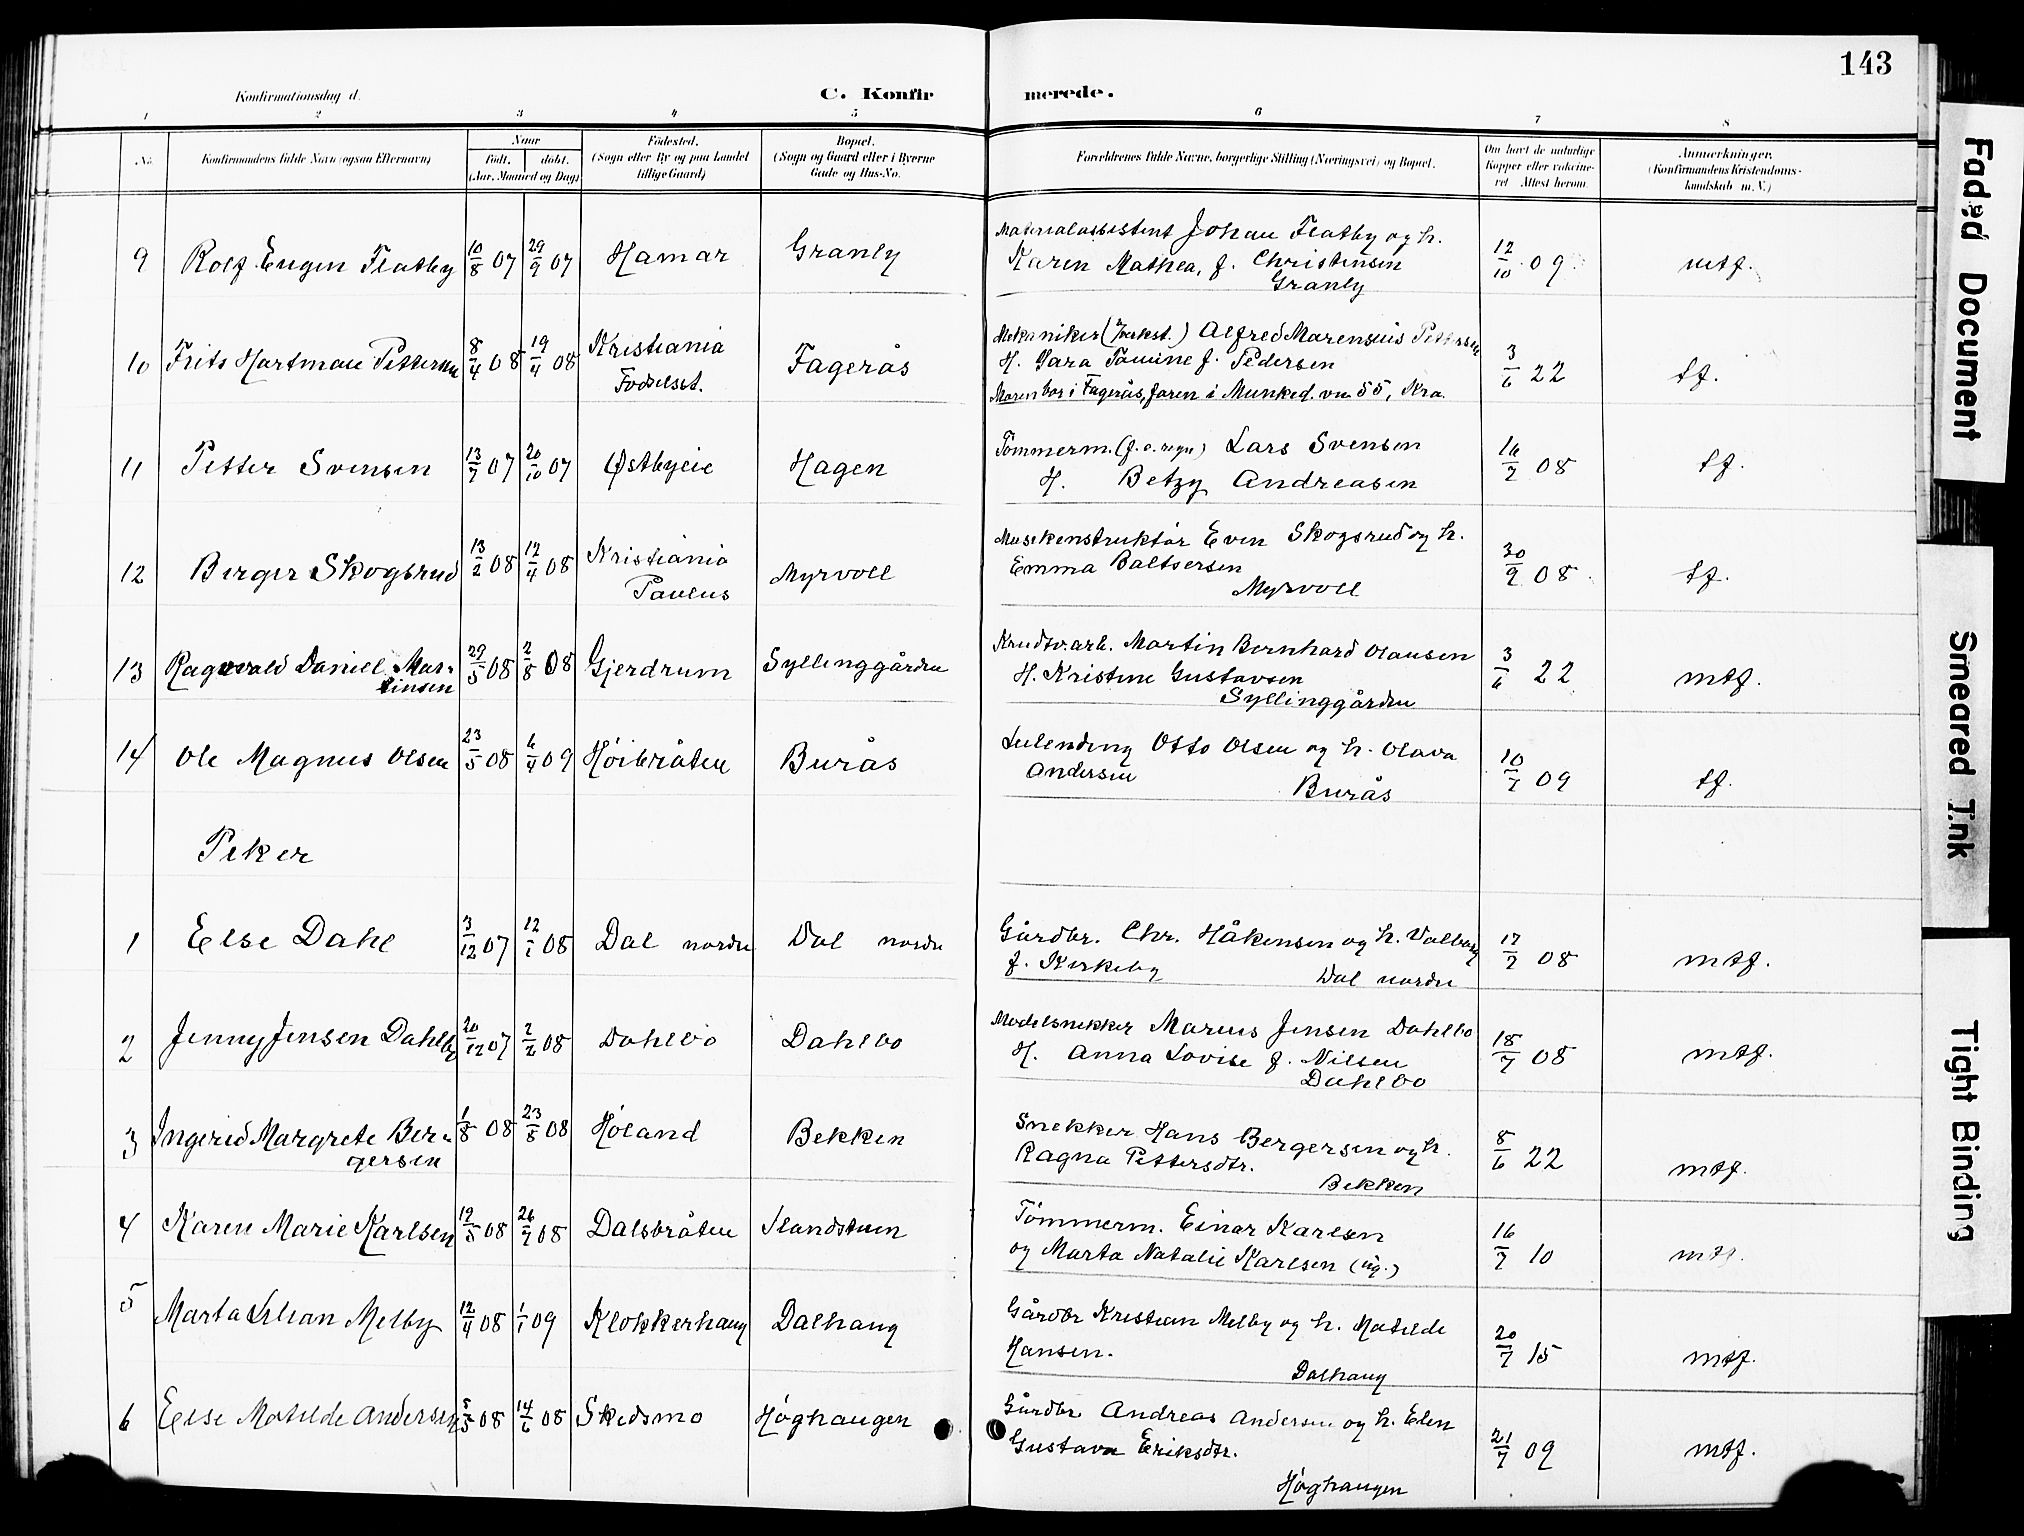 143
Konfirmationsdag d.
C. Konfirmerede.
1 2 3 4 5 6 7 8
No. Konfirmandens fulde Navn (ogsaa Efternavn) Naar født. døbt. (Aar, Maaned og Dag) Fødested. (Sogn eller By og paa Landet tillige Gaard) Bopæl. (Sogn og Gaard eller i Byerne Gade og Hus-No. Forældrenes fulde Navne, borgerlige Stilling (Næringsvei) og Bopæl. Om havt de naturlige Kopper eller vaccineret Attest herom. Anmærkninger. (Konfirmandens Kristendomskundskab m. V.)
9 Rolf Eugen Flatby 10/8 07 29/9 07 Hamar Granly Materialassistent Johan Flatby og h. 12/10 09 mtf.
Karen Mathea, f. Christensen
Granly
10 Frits Hartman Pettersen 8/4 08 19/4 08 Kristiania Fagerås Mekaniker (Jvrkst.) Alfred Marensius Pettersen 3/6 22 tf.
Fødselsst. H. Sara Tomine f. Pedersen
Moren bor i Fagerås, faren i Munked. vn 55, Kra.
11 Petter Svensen 13/7 07 20/10 07 Østbyeie Hagen Tømmerm. Lars Svensen 16/7 08 tf.
H. Betzy Andreasen
12 Birger Skogsrud 13/2 08 12/4 08 Kristiania Myrvoll Musikenstruktør Even Skogsrud og h. 30/9 08 tf.
Paulus Emma Baltsersen
Myrvoll
13 Ragnvald Daniel Mar- 29/5 08 2/8 08 Gjerdrum Syllinggården Krudtvarb. Martin Bernhard Olausen 3/6 22 mtf.
tinsen H. Kristine Gustavsen
Syllinggården
14 Ole Magnus Olsen 23/5 08 09 Høibråten Burås Leilending Otto Olsen og h. Olava 10/7 09 tf.
Andersen
Burås
Piker
1 Else Dahl 3/12 07 12/1 08 Dal nordre Dal nordre Gårdbr. Chr. Håkensen og h. Valborg 17/7 08 mtf.
f. Kirkeby Dal nordre
2 Jenny Jensen Dahlby 20/12 07 2/2 08 Dahlbo Dahlbo Modelsnekker Marius Jensen Dahlbo 18/7 08 mtf.
H. Anna Lovise f. Nilsen
Dahlbo
3 Ingerid Margrete Ber- 1/8 08 23/8 08 Høland Bekken Snekker Hans Bergersen og h. 8/6 22 mtf.
gersen Ragna Pettersdtr.
Bekken
4 Karen Marie Karlsen 12/5 08 26/7 08 Dalsbråten Slandstuen Tømmerm. Einar Karlsen 16/7 10 mtf.
og Marta Natalie Karlsen (ug.)
5 Marta Lilian Melby 12/4 08 1/1 09 Klokkerhaug Dalhaug Gårdbr Kristian Melby og h. Matilde 20/7 15 mtf.
Hansen.
Dalhaug
6 Else Matilde Andersen 5/5 08 14/6 08 Skedsmo Høghaugen Gårdbr Andreas Andersen og h. Elen 21/7 09 mtf.
Gustava Eriksdtr.
Høghaugen
Faded Document
Smeared Ink
Tight Binding